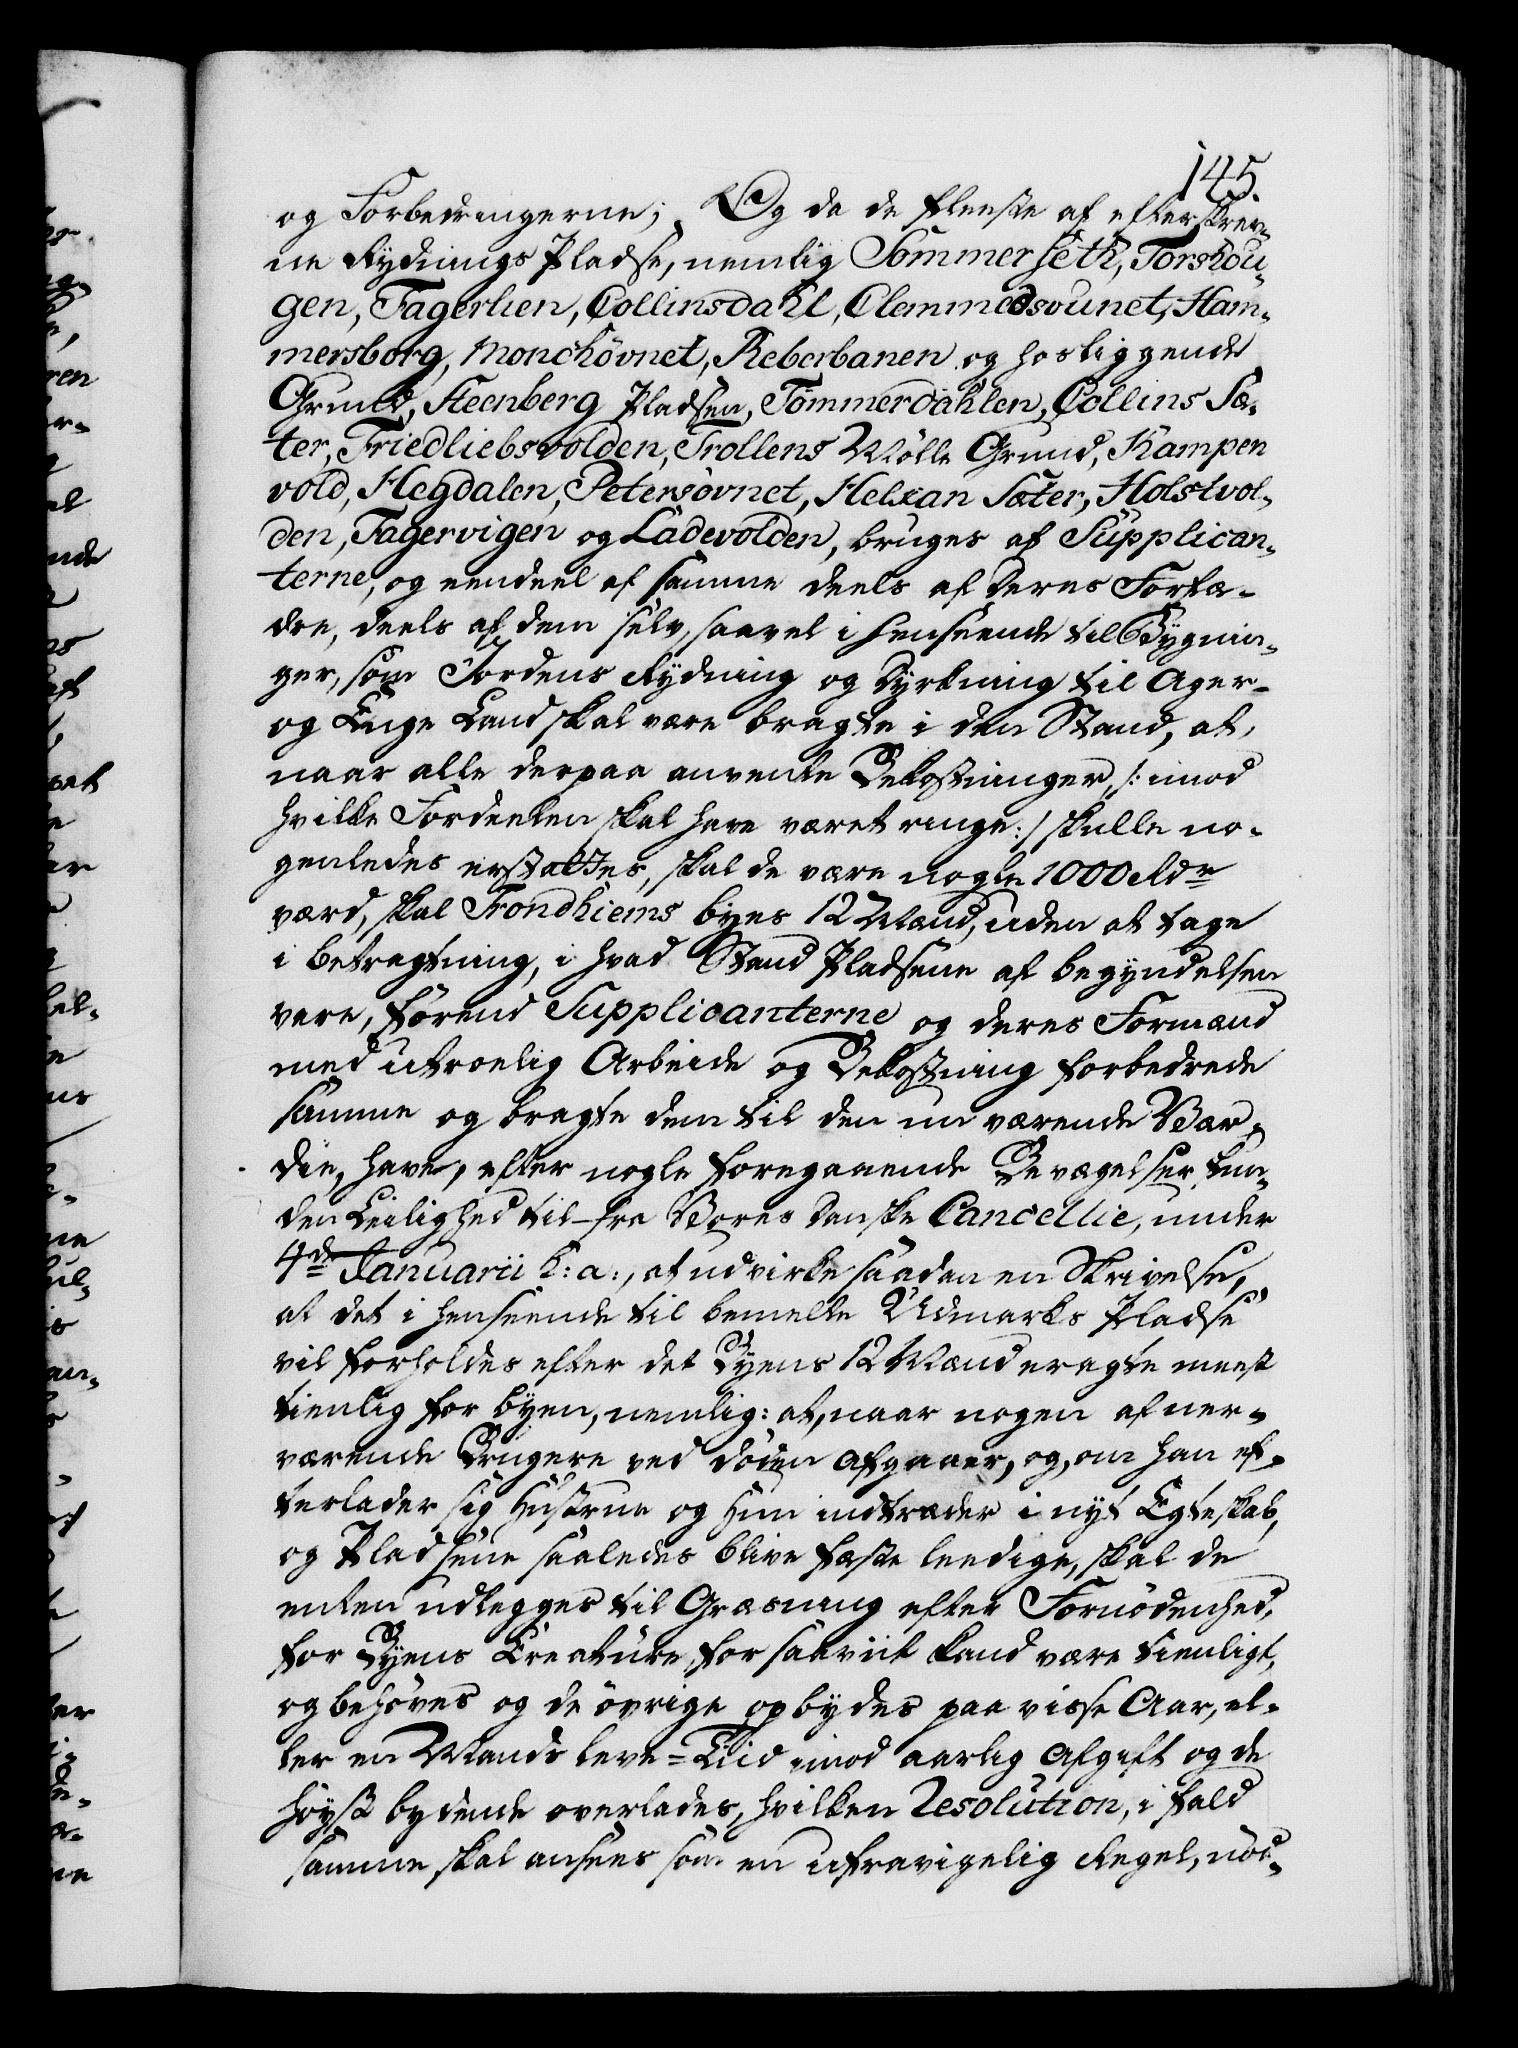 145.
og Forbedringerne; Og da de fleeste af efterskrev-
ne Rydnings Pladse, nemlig Sommerseth, Torshou-
gen, Fagerlien, Collinsdahl, Clemmedsvunet, Ham-
mersborg, Monchövnet, Reberbanen og hosliggende
Grund, Steenberg Pladsen, Tömmerdahlen, Collins Sæ-
ter, Friedliebsvolden, Trollens Mölle Grund, Kampen
vold, Hegdalen, Petersövnet, Helxan Sæter, Holstvol-
den, Fagervigen og Ladevolden, bruges af Supplican-
terne, og eendeel af samme deels af deres Forfæ-
dre, deels af dem selv, saavel i henseende til Bygnin-
ger, som Jordens Rydning og Dyrkning til Ager-
og Enge Land skal være bragte i den Stand, at,
naar alle derpaa anvendte Bekostninger /: imod
hvilke Fordeelen skal have været ringe :/ skulle no-
genledes erstattes, skal de være nogle 1000 Rdr
værd, skal Trondhiems byes 12 Mænd, uden at tage
i betragtning, i hvad Stand Pladsene af begyndelsen
vare, förend Supplicanterne og deres Formænd
med utroelig Arbeide og Bekostning forbedrede
samme og bragte dem til den nu værende Vær-
die, have, efter nogle foregaaende Bevægelser, fun-
den Leilighed til fra Vores danske Cancellie, under
4de Januarii h: a:, at udvirke saadan en Skrivelse,
at det i henseende til bemelte Udmarks Pladse
vil forholdes efter det Byens 12 Mænd eragte meest
tienlig for byen, nemlig: at, naar nogen af nær-
værende Brugere ved döden afgaaer, og, om han ef-
terlader sig Hustrue og hun indtræder i nyt Egteskab,
og Pladsene saaledes blive fæste leedige, skal de
enten udlegges til Græsning efter Fornödenhed,
for Byens Creature, for saaviit kand være tienligt,
og behöves og de övrige opbydes paa visse Aar, el-
ler en Mands leve-Tiid imod aarlig Afgift og de
höyst bydende overlades, hvilken Resolution, i fald
samme skal ansees som en ufravigelig Regel, nöd-